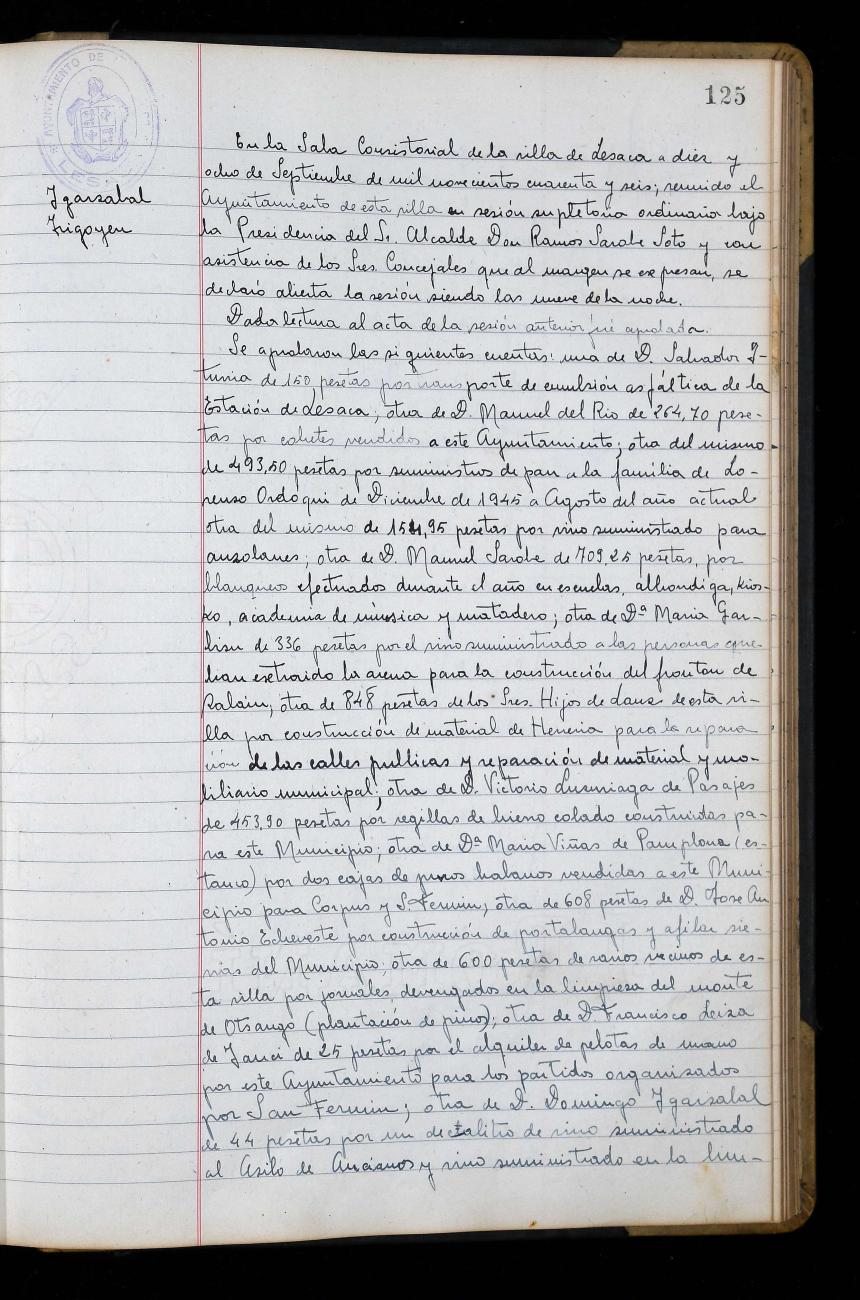 125
AYUNTAMIENTO DE
LESACA
Ygarzabal
Irigoyen
En la Sala Consistorial de la villa de Lesaca a diez y
ocho de Septiembre de mil novecientos cuarenta y seis; reunido el
Ayuntamiento de esta villa en sesión supletoria ordinaria bajo
la Presidencia del Sr. Alcalde Don Ramos Sarobe Soto y con
asistencia de los Sres. Concejales que al margen se expresan, se
declaró abierta la sesión siendo las nueve de la noche.
Dada lectura al acta de la sesión anterior fué aprobada.
Se aprobaron las siguientes cuentas: una de D. Salvador I-
turria de 150 pesetas por transporte de emulsión asfáltica de la
Estación de Lesaca; otra de D. Manuel del Rio de 264,70 pese-
tas por cohetes vendidos a este Ayuntamiento; otra del mismo
de 493,50 pesetas por suministros de pan a la familia de Lo-
renzo Ordoqui de Diciembre de 1945 a Agosto del año actual
otra del mismo de 154,95 pesetas por vino suministrado para
auzolanes; otra de D. Manuel Sarobe de 709,25 pesetas, por
blanqueos efectuados durante el año en escuelas, alhondiga, kios-
ko, academia de música y matadero; otra de Dª Maria Gar-
bisu de 336 pesetas por el vino suministrado a las personas que
han extraido la arena para la construcción del fronton de
Zalain; otra de 848 pesetas de los Sres. Hijos de Lanz de esta vi-
lla por construcción de material de Herreria para la repara
ción de las calles publicas y reparación de material y mo-
biliario municipal; otra de D. Victorio Luzuriaga de Pasajes
de 453,90 pesetas por regillas de hierro colado construidas pa-
ra este Municipio; otra de Dª Maria Viñas de Pamplona (es-
tanco) por dos cajas de puros habanos vendidas a este Muni-
cipio para Corpus y S. Fermin; otra de 608 pesetas de D. Jose An
tonio Echeveste por construción de portalangas y afilar sie-
rras del Municipio; otra de 600 pesetas de varios vecinos de es-
ta villa por jornales devengados en la limpieza del monte
de Otsango (plantación de pino); otra de D. Francisco Leiza
de Yanci de 25 pesetas por el alquiler de pelotas de mano
por este Ayuntamiento para los partidos organizados
por San Fermin; otra de D. Domingo Ygarzabal
de 44 pesetas por un decalitro de vino suministrado
al Asilo de Ancianos y vino suministrado en la lim-